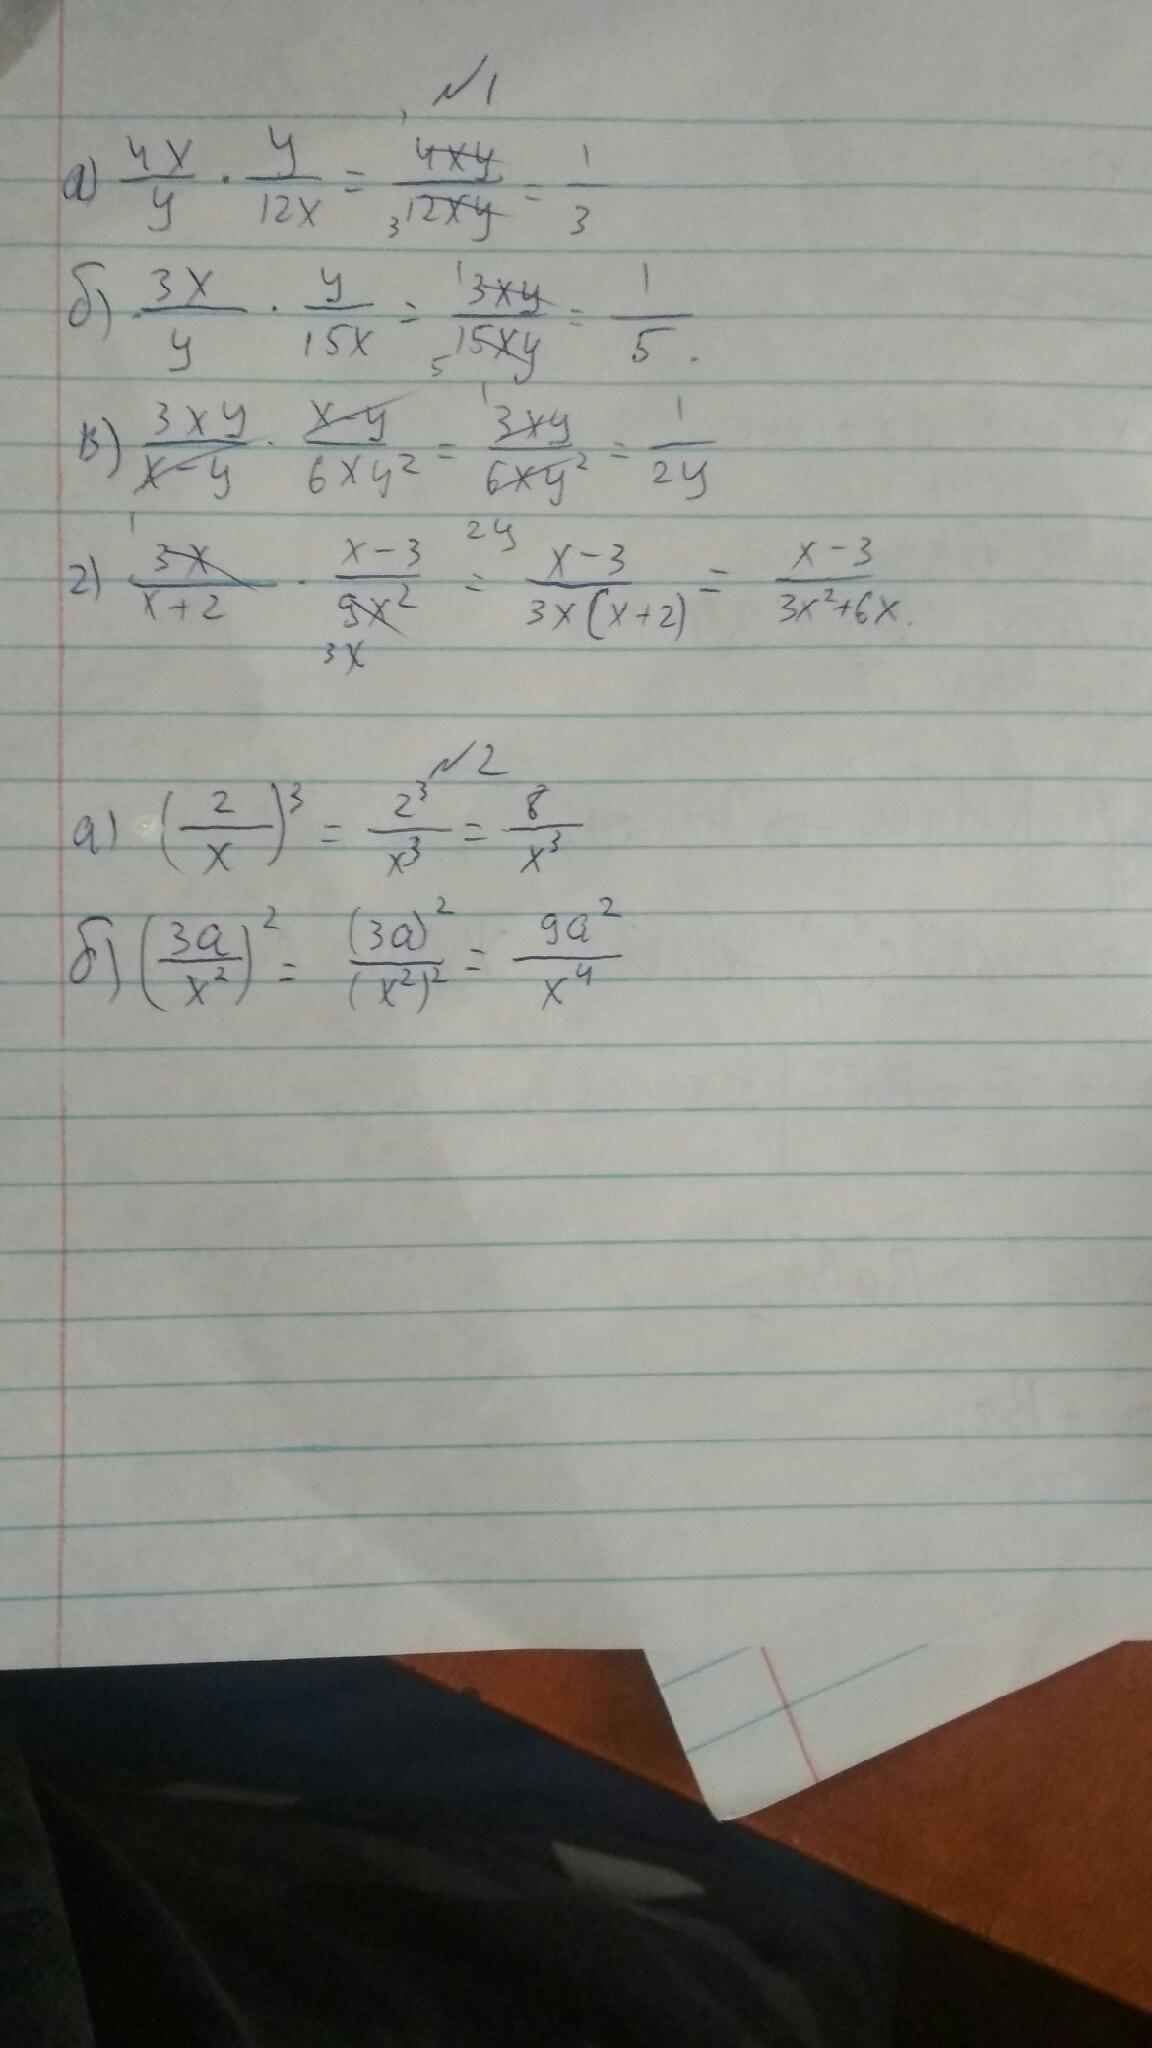 №1
а) 4x/y · y/12x = 4xy/12xy 3 = 1/3
б) 3x/y · y/15x = 1 3xy/15xy 5 = 1/5.
в) 3xy/x-y · x-y/6xy² = 1 3xy/6xy² 2y = 1/2y
г) 1 3x/x+2 · x-3/9x² 3x = x-3/3x(x+2) = x-3/3x²+6x.
№2
а) (2/x)³ = 2³/x³ = 8/x³
б) (3a/x²)² = (3a)²/(x²)² = 9a²/x⁴